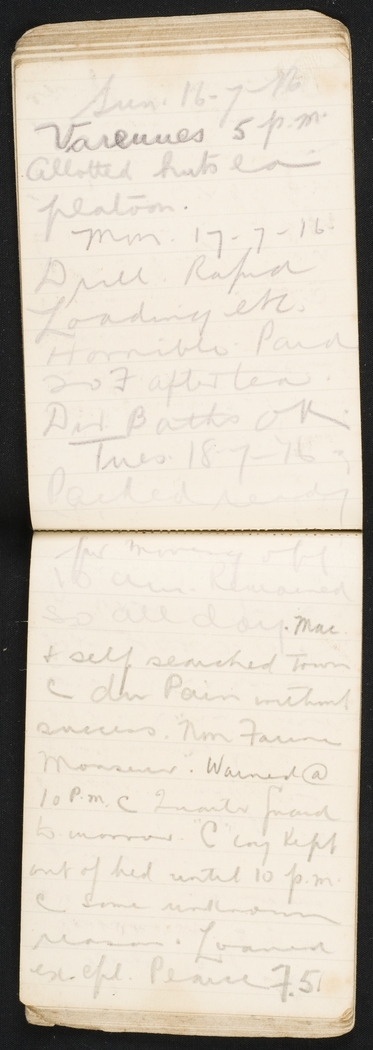 Sun. 16-7-16
Varennes 5 p.m.
Allotted huts ea
platoon.
Mon. 17-7-16.
Drill. Rapid
Loading etc.
Horrible. Paid
20F after tea.
Div Baths OK.
Tues. 18-7-16
Packed ready
for moving off
10 a.m. Remained
so all day. Mac.
& self searched town
C du Pain without
success. "Non Farine
Monsieur". Warned @
10 P.m. C Quarter Guard
to morrow. C coy kept
out of bed until 10 p.m.
C some unknown
reason. Loaned
ex. Cpl. Pearce 7.5.